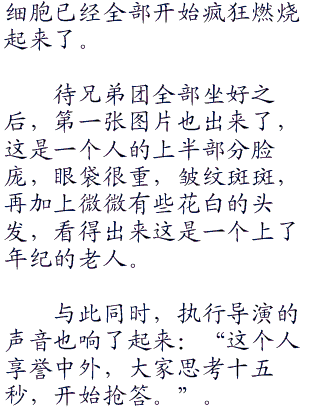 细胞已经全部开始疯狂燃烧
起来了。
待兄弟团全部坐好之
后，第一张图片也出来了，
这是一个人的上半部分脸
庞，眼袋很重，皱纹斑斑，
再加上微微有些花白的头
发，看得出来这是一个上了
年纪的老人。
与此同时，执行导演的
声音也响了起来：“这个人
享誉中外，大家思考十五
秒，开始抢答。”。